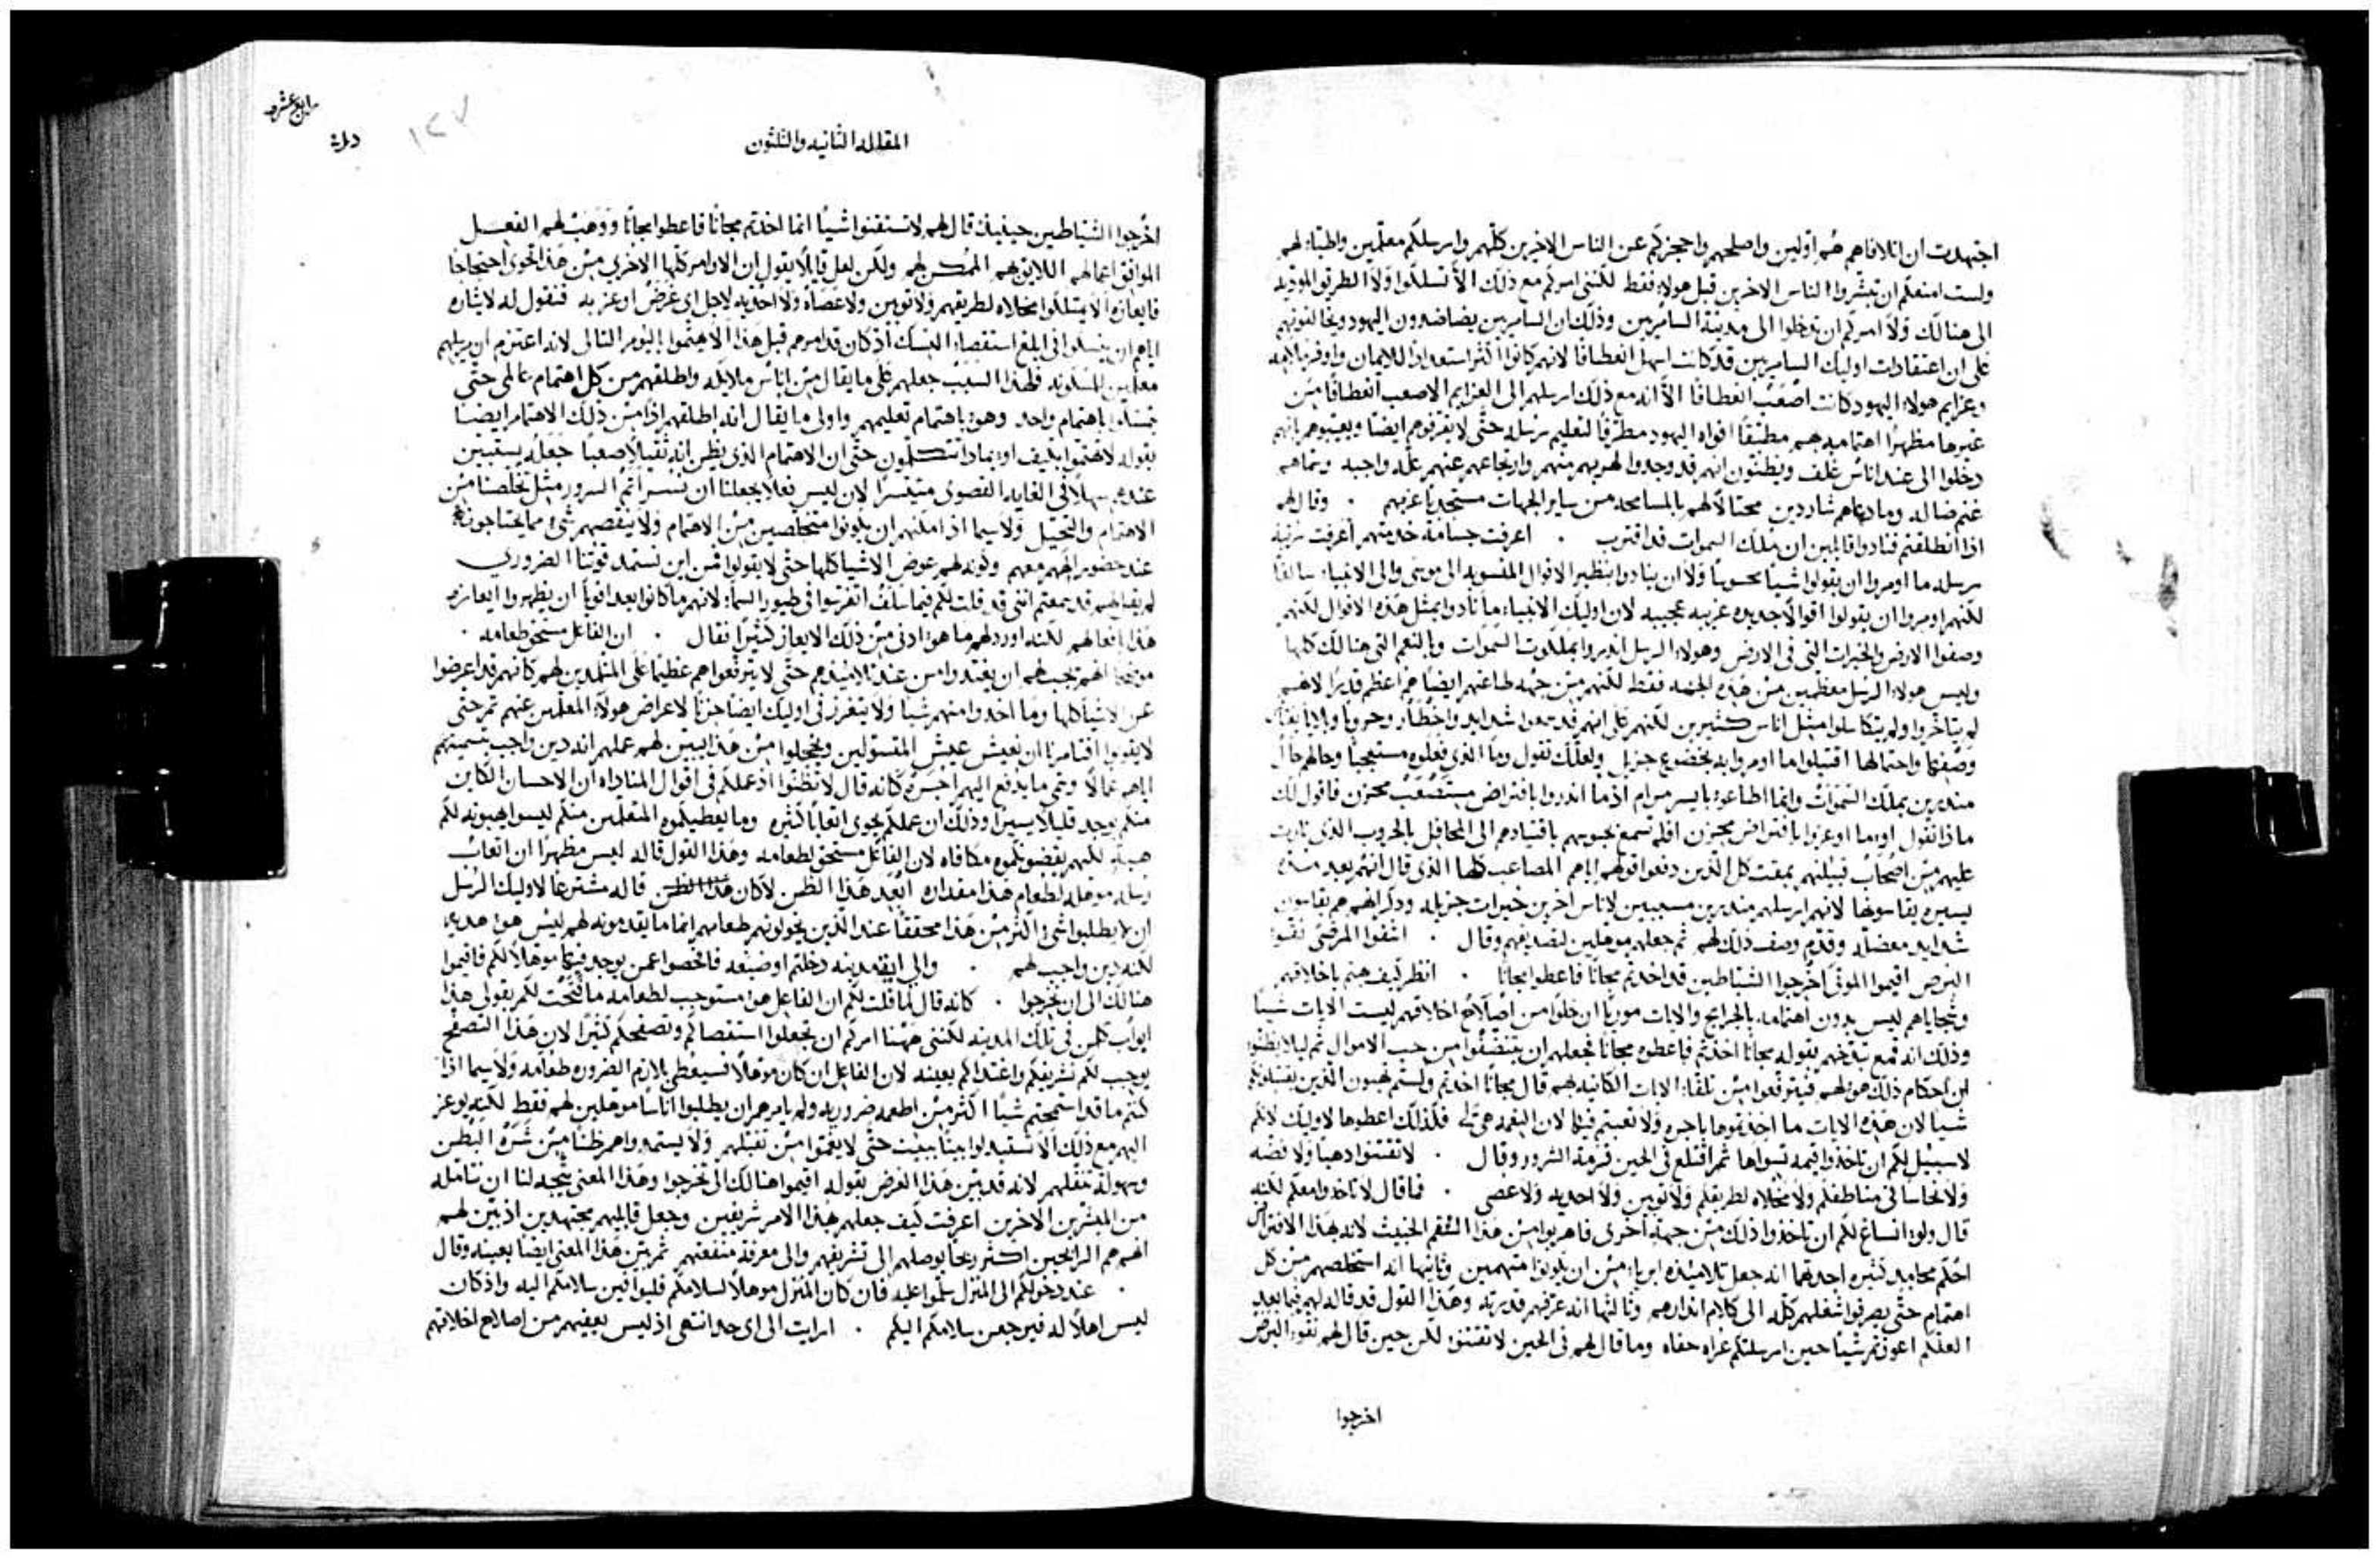 اجتهدت ان اتلافاهم هم اولين واصلحهم واحجزكم عن الناس الاخرين كلهم وارسلكم معلمين واطباء لهم
ولست امنعكم ان تبشروا الناس الاخرين قبل هولاء فقط لكنني امركم مع ذلك الا تسلكوا ولا الطريق الموديه
الى هنالك ولا امركم ان تدخلوا الى مدينة السامريين وذلك ان السامريين يضاضدون اليهود ويخالفونهم
على ان اعتقادات اوليك السامريين قد كانت اسهل انعطافا لانهم كانوا اكثر استعدادا للايمان واوفر
وعزايم هولاء اليهود كانت اصعب انعطافا الا انه مع ذلك ارسلهم الى العزايم الاصعب انعطافا من
غيرها مظهرا اهتمامه بهم مطبقا افواه اليهود مطرقا لتعليم رسله حتى لا يقرفوهم ايضا ويعيبوهم انهم
دخلوا الى عند اناس غلف ويظنون انهم قد وجدوا لهربهم منهم وارتجاعهم عنهم عله واجبه وسماهم
غنم ضاله وما دعاهم شاردين محتالا لهم بالمسامحه من ساير الجهات مستجديا عزمهم . وقال لهم
اذا انطلقتم فنادوا قايلين ان ملك السموات قد اقترب . اعرفت جسامة خدمتهم اعرفت رتبة
رسله ما اومروا ان يقولوا شيا محسوسا ولا ان ينادوا بنظير الاقوال المنسوبه الى موسى والى الانبياء سالفا
لكنهم اومروا ان يقولوا اقوالا جديده غريبه عجيبه لان اوليك الانبياء ما نادوا بمثل هذه الاقوال لكنهم
وصفوا الارض والخيرات التي في الارض وهولاء الرسل انذروا بملكوت السموات وبالنعم التي هنالك كلها
وليس هولاء الرسل معظمين من هذه الجهه فقط لكنهم من جهة طاعتهم ايضا هم اعظم قدرا لانهم
لم يتاخروا ولم يتكاسلوا مثل اناس كثيرين لكنهم على انهم قد سمعوا شدايد واخطار وحروبا وبلايا
وصفها واحتمالها اقتبلوا ما اومروا به بخضوع جزيل ولعلك تقول وما الذي فعلوه مستعجبا وحالهم حال
منذرين بملك السموات وانما اطاعوه بايسر مرام اذ ما انذروا بافتراض مستصعب محزن فاقول لك
ماذا تقول اوما اوعزوا بافتراض محزن افلم تسمع بحبوسهم باقتيادهم الى المحافل بالحروب الذي ثارت
عليهم من اصحاب قبيلتهم بمقت كل الذين دفعوا قولهم اياهم المصاعب كلها الذي قال انهم بعد مده
يسيره يقاسونها لانهم ارسلهم منذرين مسببين لاناس اخرين خيرات جزيله وذكر انهم هم يقاسون
شدايد معضله وقدم وصف ذلك لهم ثم جعلهم موهلين لتصديقهم وقال . اشفوا المرضى نقوا
البرص اقيموا الموتى اخرجوا الشياطين قد اخذتم مجانا فاعطوا مجانا . انظر كيف هتم باخلاقهم
وسجاياهم ليس بدون اهتمامه بالجرايح والايات موريا ان خلوا من اصلاح اخلاقهم ليست الايات شيا
وذلك انه قمع تبذخهم بقوله مجانا اخذتم فاعطوه مجانا فجعلهم ان يتنضفوا من حب الاموال ثم ليلا يظنوا
ان احكام ذلك هو لهم فيترفعوا من تلقاء الايات الكاينه لهم قال مجانا اخذتم ولستم تهبون الذين يقبلونكم
شيا لان هذه الايات ما اخذتموها باجره ولا تعبتم فيها لان النعمه هي لي فلذلك اعطوها لاوليك لانكم
لا سبيل لكم ان تاخذوا قيمه تسواها ثم اقتلع في الحين قرمة الشرور وقال . لا تقتنوا ذهبا ولا فضه
ولا نحاسا في مناطقكم ولا مخلاه لطريقكم ولا ثوبين ولا احذيه ولا عصى . فما قال لا تاخذوا معكم لكنه
قال ولو انساغ لكم ان تاخذوا ذلك من جهة اخرى فاهربوا من هذا السقم الخبيث لانه بهذا الافتراض
احكم محامد كثيره احدتها انه جعل تلاميذه ابرياء من ان يكونوا متهمين وثانيها انه استخلصهم من كل
اهتمام حتى يصرفوا شغلهم كله الى كلام انذارهم وثالثها انه عرفهم قدرته وهذا القول قد قاله لهم فيما بعد
العلكم اعوزتم شيا حين ارسلتكم عراه حفاه وما قال لهم في الحين لا تقتنوا لكن حين قال لهم نقوا البرص
اخرجوا
رابع عشر
المقاله الثانيه والثلثون
١٢٧
اخرجوا الشياطين حينيذ قال لهم لا تستقنوا شيا انما اخذتم مجانا فاعطوا مجانا ووهب لهم الفعل
الموافق اعمالهم اللايق بهم الممكن لهم ولكن لعل قايلا يقول ان الاوامر كلها الاخرى من هذا تحوى احتجاجا
فايعازه الا يمتلكوا مخلاه لطريقهم ولا ثوبين ولا عصاه ولا احذيه لاجل اي غرض اوعز به فنقول له لايثاره
اياهم ان ينسكوا في ابلغ استقصاء النسك اذ كان قد امرهم قبل هذا الا يهتموا باليوم التالى لانه اعتزم ان يرسلهم
معلمين المسكونه فلهذا السبب جعلهم على ما يقال من اناس ملايكه واطلقهم من كل اهتمام عالمى حتى
يتمسكوا باهتمام واحد وهو باهتمام تعليمهم واولى ما يقال انه اطلقهم اذا من ذلك الاهتمام ايضا
بقوله لا تهتموا بكيف او بماذا تتكلمون حتى ان الاهتمام الذي يظن انه ثقيلا صعبا جعله يستبين
عندهم سهلا في الغايه القصوى متيسرا لان ليس فعلا يجعلنا ان نسر اتم السرور مثل تخلصنا من
الاهتمام والتحيل ولا سيما اذ امكنهم ان يكونوا متخلصين من الاهتمام ولا ينقصهم شي مما يحتاجونه
عند حضور الههم معهم وكونه لهم عوض الاشيا كلها حتى لا يقولوا فمن اين نستمد قوتنا الضروري
لم يقل لهم قد سمعتم انني قد قلت لكم فيما سلف اتفرسوا في طيور السماء لانهم ما كانوا بعد اقويا ان يظهروا ايعازه
هذا بافعالهم لكنه اورد لهم ما هو ادنى من ذلك الايعاز كثيرا فقال . ان الفاعل مستحق طعامه .
موضحا انهم يجب لهم ان يغتذوا من عند تلاميذهم حتى لا يترفعوا هم عظيما على المتلمذين لهم كانهم قد اعرضوا
عن الاشيا كلها وما اخذوا منهم شيا ولا يتغرز في اوليك ايضا حزنا لاعراض هولاء المعلمين عنهم ثم حتى
لا يقولوا افتامرنا ان نعيش عيش المتسولين ويخجلوا من هذا يبين لهم عملهم انه دين واجب بتسميتهم
اياهم عمالا وسمى ما يدفع اليهم اجره كانه قال لا تظنوا اذ عملكم في اقوال المناداه ان الاحسان الكاين
منكم يوجد قليلا يسيرا وذلك ان عملكم يحوى اتعابا كثيره وما يعطيكموه المتعلمين منكم ليسوا يهبونه لكم
هبه لكنهم يقضونكموه مكافاه لان الفاعل مستحق لطعامه وهذا القول قاله ليس مظهرا ان اتعاب
رسله موهله لطعام هذا مقداره ابعد هذا الظن لا كان هذا الظن قاله مشترعا لاوليك الرسل
ان لا يطلبوا شي اكثر من هذا محققا عند الذين يخولونهم طعامهم انما ما يقدمونه لهم ليس هو هديه
لكنه دين واجب لهم . والى ايه مدينه دخلتم او ضيعه فافحصوا عمن يوجد فيها موهلا لكم فاقيموا
هنالك الى ان تخرجوا . كانه قال لما قلت لكم ان الفاعل هو مستوجب لطعامه ما فتحت لكم بقولى هذا
ابواب كلمن في تلك المدينه لكنني ههنا امركم ان تجعلوا استقصاكم وتصفحكم كثيرا لان هذا التصفح
يوجب لكم تشريفكم واغتذاكم بعينه لان الفاعل ان كان موهلا فسيعطى بلازم الضروره طعامه ولا سيما اذا
كنتم ما قد استمحتم شيا اكثر من اطعمه ضروريه ولم يامرهم ان يطلبوا اناسا موهلين لهم فقط لكنه يوعز
اليهم مع ذلك الا تستبدلوا بيتا ببيت حتى لا يغموا من تقبلهم ولا يستمدوا هم ظنا من شره البطن
وسهولة تنقلهم لانه قد بين هذا الغرض بقوله اقيموا هنالك الى تخرجوا وهذا المعنى يتجه لنا ان نتامله
من المبشرين الاخرين اعرفت كيف جعلهم بهذا الامر شريفين وجعل قابليهم مجتهدين اذ بين لهم
انهم هم الرابحين اكثر ربحا يوصلهم الى تشريفهم والى معرفة منفعتهم ثم بين هذا المعنى ايضا بعينه وقال
. عند دخولكم الى المنزل سلموا عليه فان كان المنزل موهلا لسلامكم فليوافين سلامكم اليه واذ كان
ليس اهلا له فيرجعن سلامكم اليكم . ارايت الى اى حد انتهى اذ ليس يعفيهم من اصلاح اخلاقهم